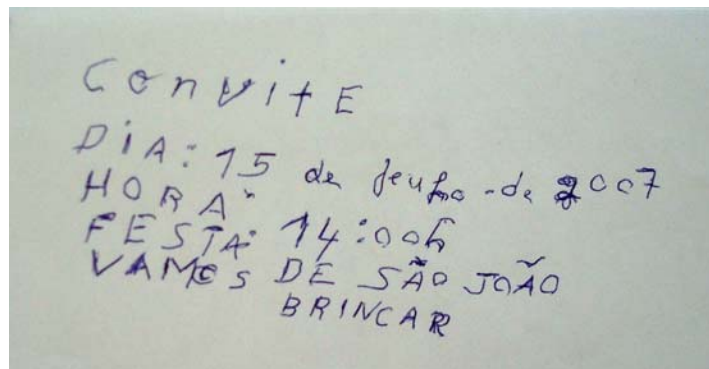 ConvitE
DiA: 15 de Jeunho - de 2007
HORA:
FESTA: 14:00h
VAMOS DE SÃO JOÃO
BRINCAR